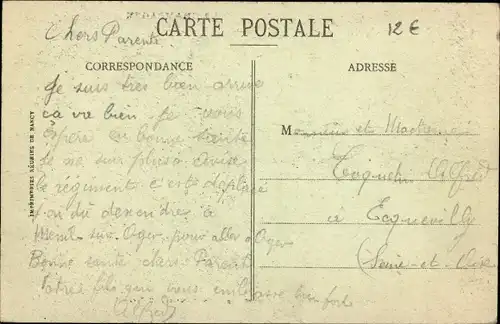 CARTE POSTALE
12 €
Chers Parents
CORRESPONDANCE
ADRESSE
Je suis très bien arrivé
ça va bien je vous
espère en bonne santé
je ne suis plus a
le régiment c'est déplacé
on du descendre à
Mesnil sur Oger pour aller a Oger
Bonne santé chers Parents
Votre fils qui vous embrasse bien fort
Alfred
IMPRIMERIES RÉUNIES DE NANCY
Monsieur et Madame
Alfred
à Ecquevilly
(Seine-et-Oise